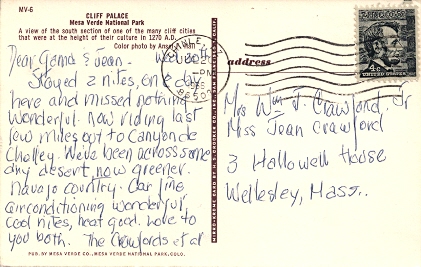 MV-6
CLIFF PALACE
Mesa Verde National Park
A view of the south section of one of the many cliff cities
that were at the height of their culture in 1270 A.D.
Color photo by
Dear Gama & Jean - We've
Stayed 2 nites, one day
here and missed nothing
Wonderful. Now riding last
few miles out to Canyon de
Chelley. We've been across some
dry desert, now greener.
Navajo country. Car fine
airconditioning wonderful
cool nites, heat good. Love to
you both. The Crawfords et al
PUB. BY MESA VERDE CO., MESA VERDE NATIONAL PARK, COLO.
4c
UNITED STATES
address
Mrs Wm J. Crawford Jr
Miss Jean Crawford
3 Hallowell House
Wellesley, Mass.